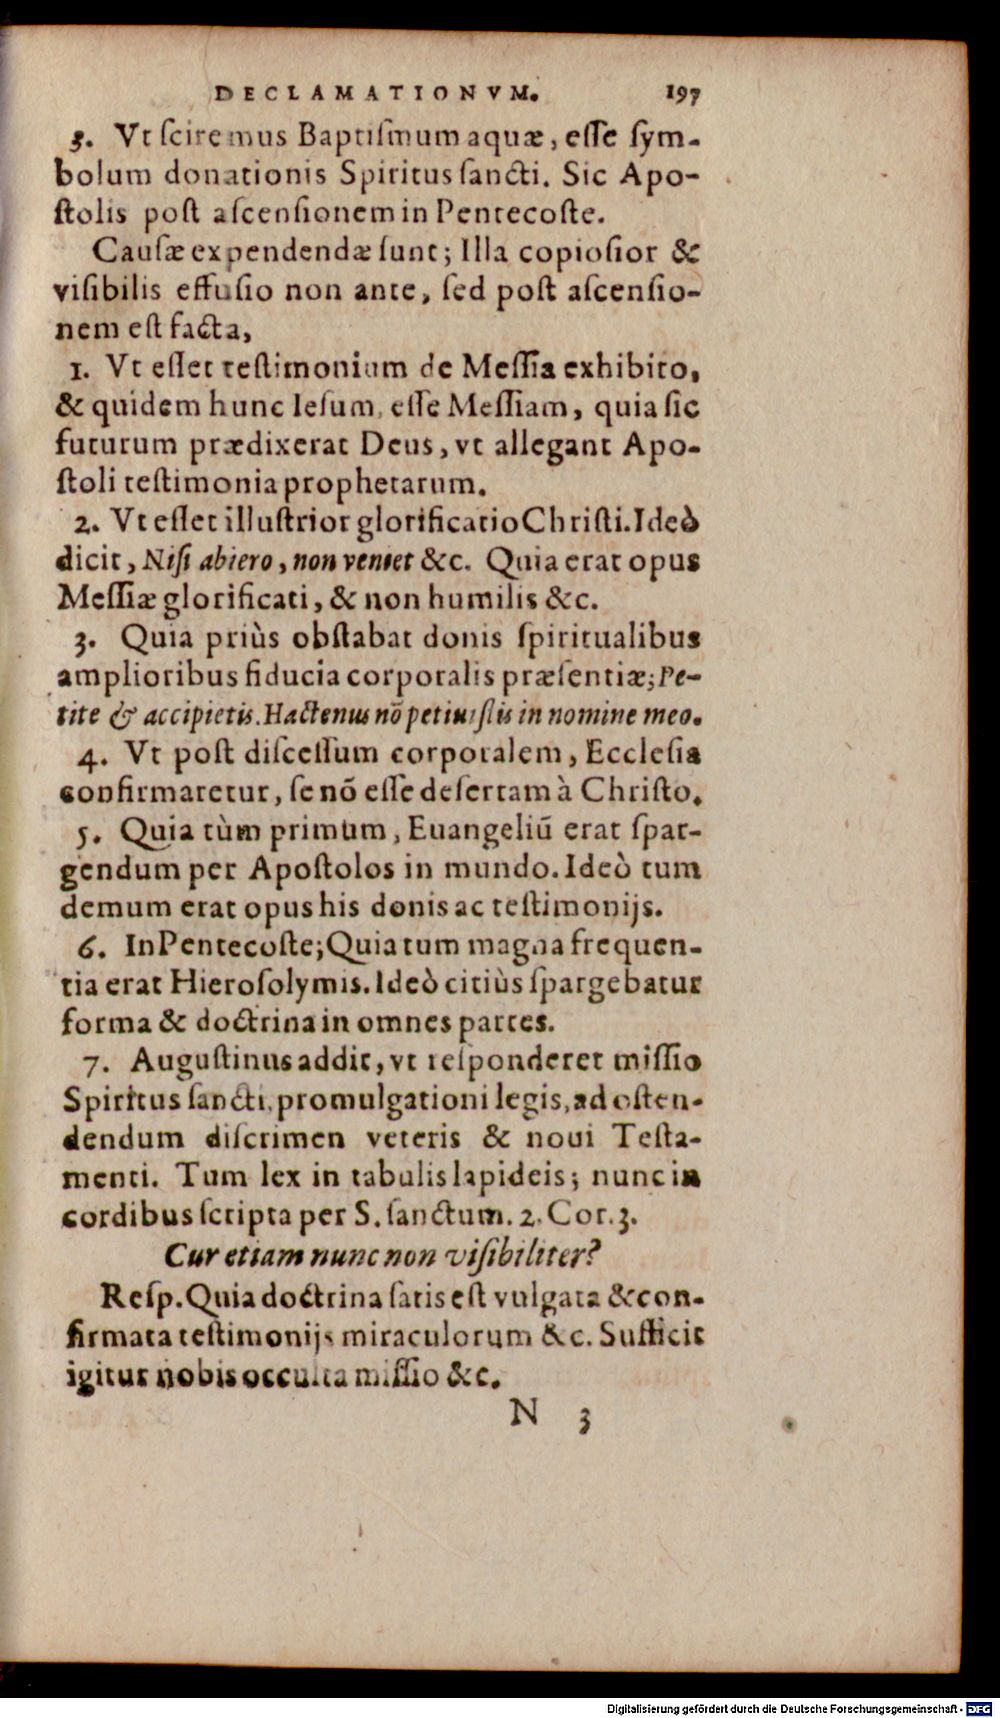 DECLAMATIONVM. 197
3. Vt ſciremus Baptiſmum aquæ, eſſe ſym-
bolum donationis Spiritus ſancti. Sic Apo-
ſtolis poſt aſcenſionem in Pentecoſte.
Cauſæ expendendæ ſunt; Illa copioſior &
viſibilis effuſio non ante, ſed poſt aſcenſio-
nem eſt facta,
1. Vt eſſet teſtimonium de Meſſia exhibito,
& quidem hunc Ieſum, eſſe Meſſiam, quia ſic
futurum prædixerat Deus, vt allegant Apo-
ſtoli teſtimonia prophetarum.
2. Vt eſſet illuſtrior glorificatio Chriſti. Ideò
dicit, Niſi abiero, non veniet &c. Quia erat opus
Meſſiæ glorificati, & non humilis &c.
3. Quia priùs obſtabat donis ſpiritualibus
amplioribus fiducia corporalis præſentiæ; Pe-
tite & accipietis. Hactenus nõ petiuiſtis in nomine meo.
4. Vt poſt diſceſſum corporalem, Eccleſia
confirmaretur, ſe nõ eſſe deſertam à Chriſto.
5. Quia tùm primum, Euangeliũ erat ſpar-
gendum per Apoſtolos in mundo. Ideò tum
demum erat opus his donis ac teſtimonijs.
6. In Pentecoſte; Quia tum magna frequen-
tia erat Hieroſolymis. Ideò citiùs ſpargebatur
forma & doctrina in omnes partes.
7. Auguſtinus addit, vt reſponderet miſſio
Spiritus ſancti, promulgationi legis, ad oſten-
dendum diſcrimen veteris & noui Teſta-
menti. Tum lex in tabulis lapideis; nunc in
cordibus ſcripta per S. ſanctum. 2. Cor. 3.
Cur etiam nunc non viſibiliter?
Reſp. Quia doctrina ſatis eſt vulgata & con-
firmata teſtimonijs miraculorum &c. Sufficit
igitur nobis occulta miſſio &c.
N 3
Digitalisierung gefördert durch die Deutsche Forschungsgemeinschaft - DFG